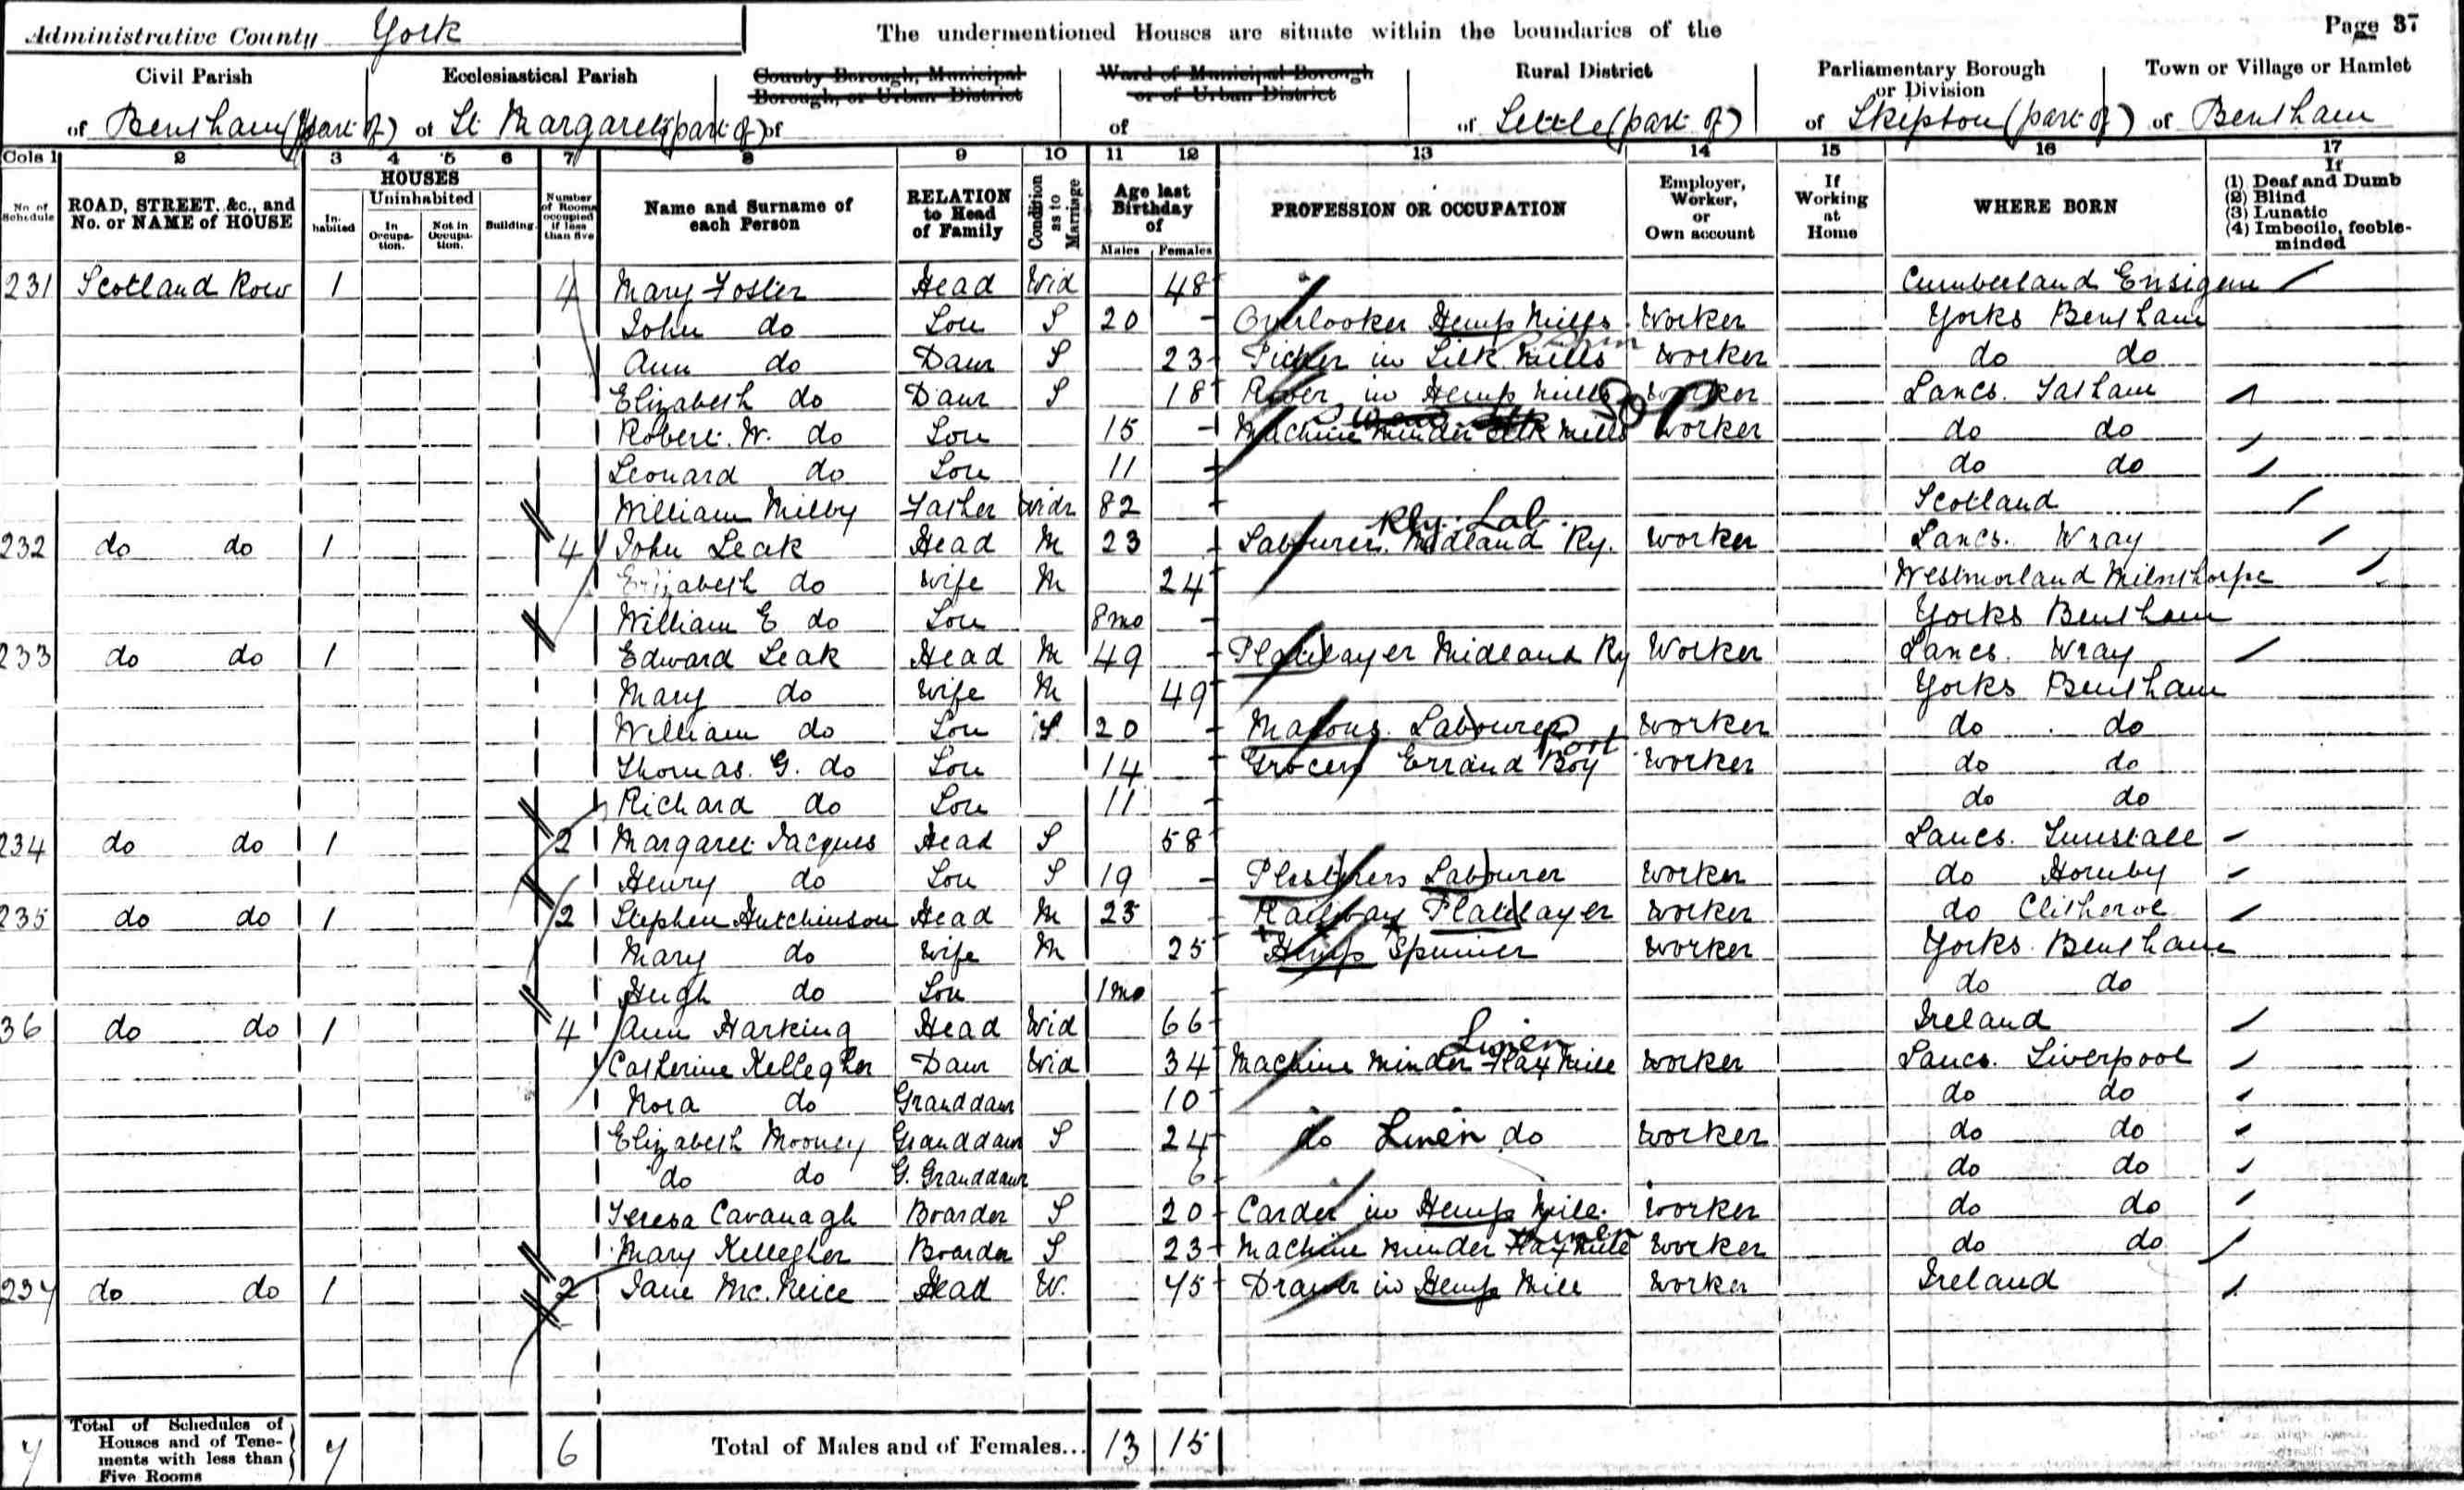 Administrative County York
The undermentioned Houses are situate within the boundaries of the
Page 37
Civil Parish
of Bentham (part of)
Ecclesiastical Parish
of St Margarets (part of)
County Borough, Municipal
Borough, or Urban District
of
Ward of Municipal Borough
or of Urban District
of
Rural District
of Settle (part of)
Parliamentary Borough
or Division
of Skipton (part of)
Town or Village or Hamlet
of Bentham
Cols 1 2 3 4 5 6 7 8 9 10 11 12 13 14 15 16 17
No. of
Schedule
ROAD, STREET, &c., and
No. or NAME of HOUSE
HOUSES
In-
habited
Uninhabited
In
Occupa-
tion.
Not in
Occupa-
tion.
Building
Number
of Rooms
occupied
if less
than five
Name and Surname of
each Person
RELATION
to Head
of Family
Condition
as to
Marriage
Age last
Birthday
of
Males Females
PROFESSION OR OCCUPATION
Employer,
Worker,
or
Own account
If
Working
at
Home
WHERE BORN
If
(1) Deaf and Dumb
(2) Blind
(3) Lunatic
(4) Imbecile, feeble-
minded
231 Scotland Row 1 4 Mary Foster Head Wid 48 Cumberland
John do Son S 20 Overlooker Hemp Mills Worker Yorks Bentham
Ann do Daur S 23 Picker in Silk Mills Worker do do
Elizabeth do Daur S 18 in Hemp Mills Worker Lancs. Tatham
Robert. W. do Son 15 Machine Minder Silk Mills Worker do do
Leonard do Son 11 do do
William Milby Father Widr 82 Scotland
Rly. Lab.
232 do do 1 4 John Leak Head M 23 Labourer. Midland Ry. Worker Lancs. Wray
Elizabeth do Wife M 24 Westmorland Milnthorpe
William E do Son 8mo Yorks Bentham
233 do do 1 Edward Leak Head M 49 Platelayer Midland Ry Worker Lancs. Wray
Mary do Wife M 49 Yorks Bentham
William do Son S 20 Masons. Labourer Worker do do
Port
Thomas. G. do Son 14 Grocers Errand Boy Worker do do
Richard do Son 11 do do
234 do do 1 2 Margaret Jacques Head S 58 Lancs. Tunstall
Henry do Son S 19 Plasterers Labourer Worker do Hornby
235 do do 1 2 Stephen Hutchinson Head M 25 Railway Platelayer Worker do Clitheroe
Mary do Wife M 25 Hemp Spinner Worker Yorks Bentham
Hugh do Son 1mo do do
36 do do 1 4 Ann Harking Head Wid 66 Ireland
Linen
Catherine Kellegher Daur Wid 34 Machine Minder Flax Mill Worker Lancs. Liverpool
Nora do Granddaur 10 do do
Elizabeth Mooney Granddaur S 24 do Linen do Worker do do
do do G. Granddaur 6 do do
Teresa Cavanagh Boarder S 20 Carder in Hemp Mill. Worker do do
Linen
Mary Kellegher Boarder S 23 Machine Minder Flax Mill Worker do do
237 do do 1 2 Jane Mc. Neice Head W. 45 Drawer in Hemp Mill Worker Ireland
7 Total of Schedules of
Houses and of Tene-
ments with less than
Five Rooms
7 6 Total of Males and of Females... 13 15